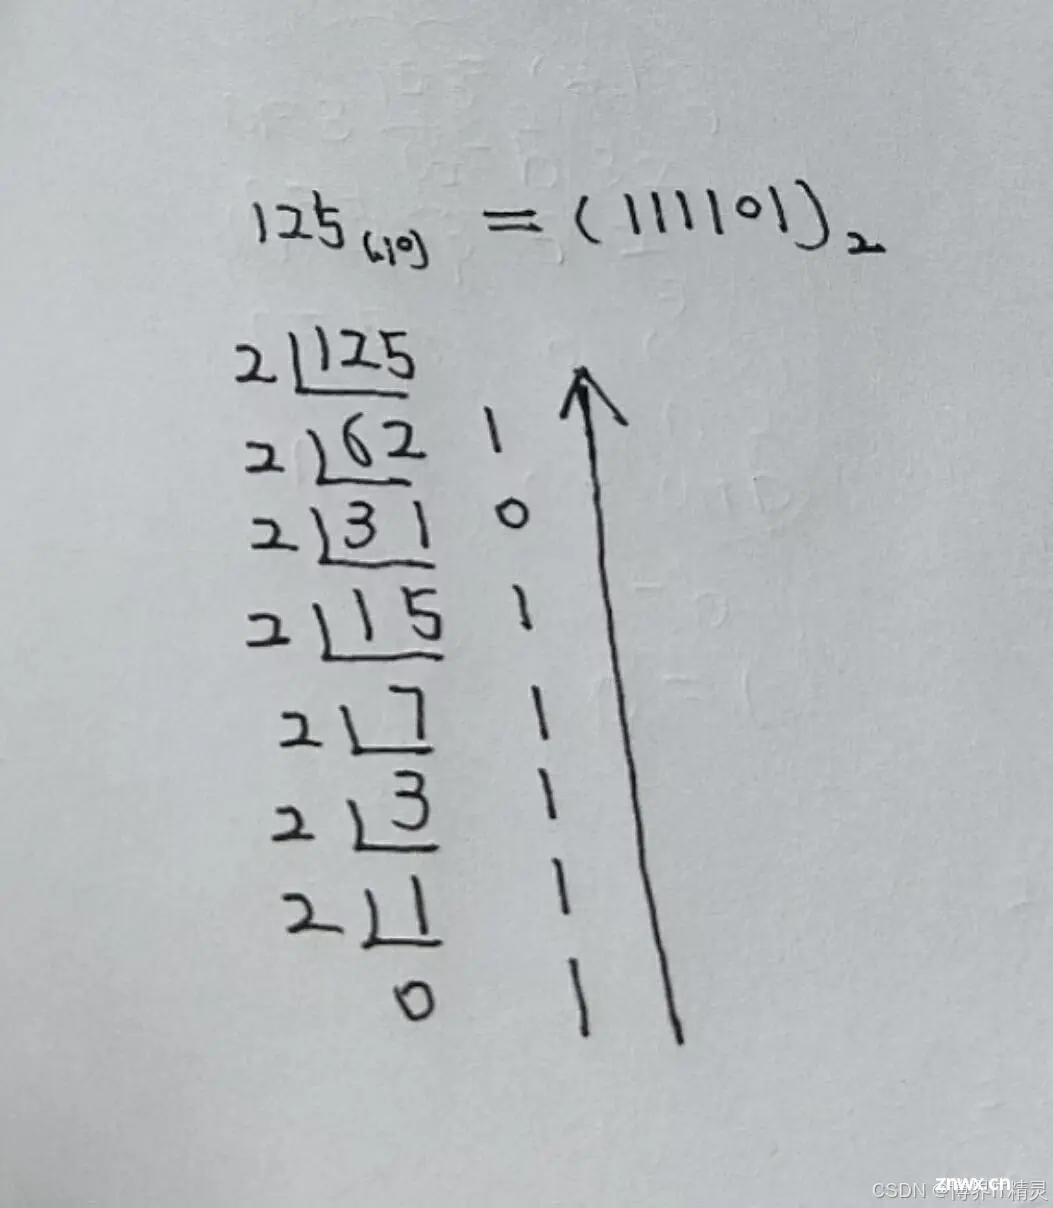 125(10) = (1111101)2
2 125
2 62 1
2 31 0
2 15 1
2 7 1
2 3 1
2 1 1
0 1
znwx.cn
CSDN @博界IT精灵